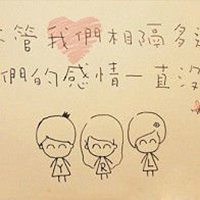 管我們相隔多
們的感情一直沒
Y R L